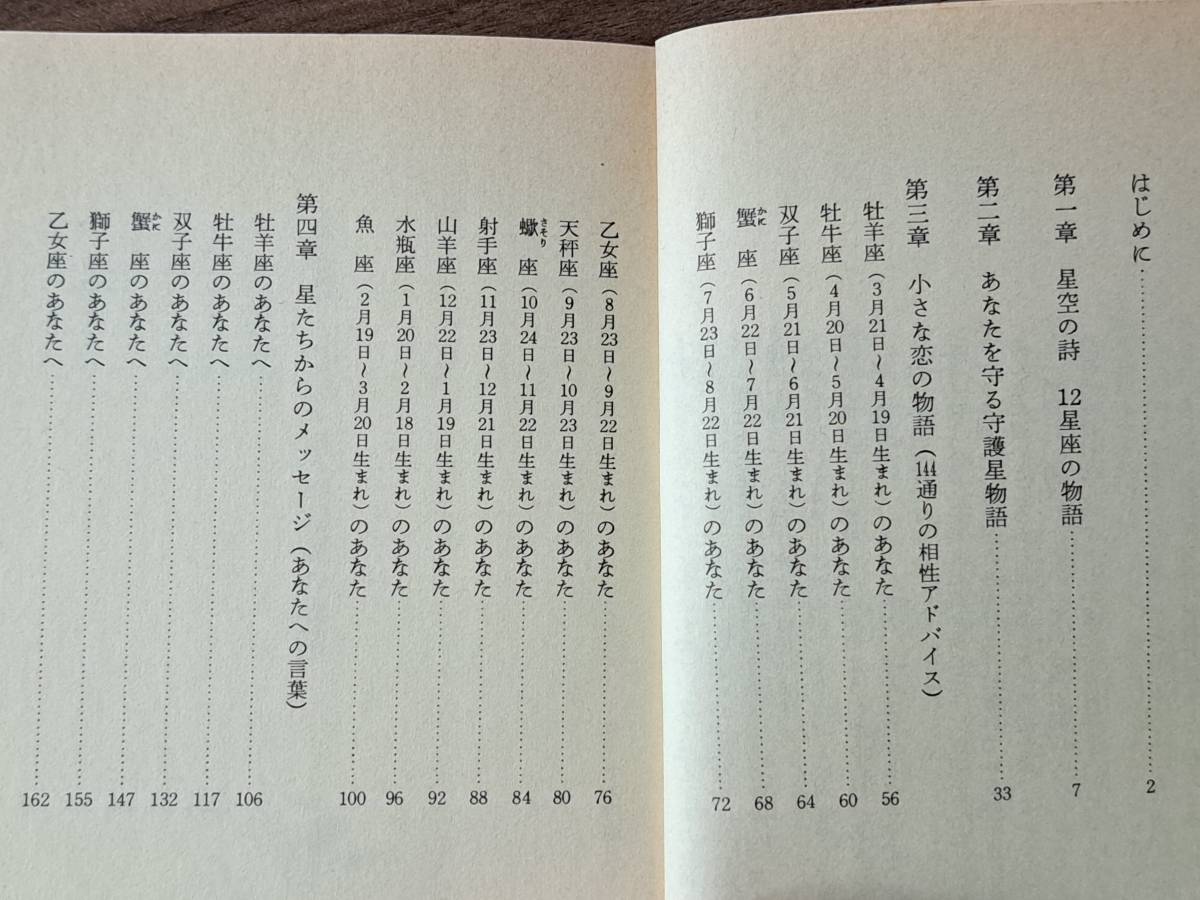 はじめに……2
第一章　星空の詩　12星座の物語……7
第二章　あなたを守る守護星物語……33
第三章　小さな恋の物語（144通りの相性アドバイス）
牡羊座（3月21日～4月19日生まれ）のあなた……56
牡牛座（4月20日～5月20日生まれ）のあなた……60
双子座（5月21日～6月21日生まれ）のあなた……64
蟹かに　座（6月22日～7月22日生まれ）のあなた……68
獅子座（7月23日～8月22日生まれ）のあなた……72
乙女座（8月23日～9月22日生まれ）のあなた……76
天秤座（9月23日～10月23日生まれ）のあなた……80
蠍さそり　座（10月24日～11月22日生まれ）のあなた……84
射手座（11月23日～12月21日生まれ）のあなた……88
山羊座（12月22日～1月19日生まれ）のあなた……92
水瓶座（1月20日～2月18日生まれ）のあなた……96
魚　座（2月19日～3月20日生まれ）のあなた……100
第四章　星たちからのメッセージ（あなたへの言葉）
牡羊座のあなたへ……106
牡牛座のあなたへ……117
双子座のあなたへ……132
蟹かに　座のあなたへ……147
獅子座のあなたへ……155
乙女座のあなたへ……162